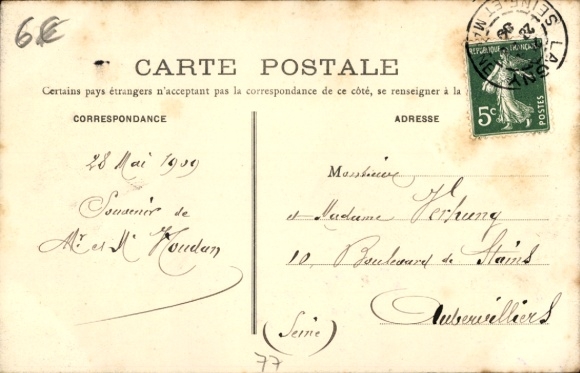 6€
CARTE POSTALE
Certains pays étrangers n'acceptant pas la correspondance de ce côté, se renseigner à la
CORRESPONDANCE
ADRESSE
LAGNY
SEINE-ET-M
REPUBLIQUE FRANÇAISE
5c
POSTES
28 Mai 1909
Souvenir de
Mr et Me Houdan
Monsieur
et Madame Verhung
10, Boulevard de Stains
Aubervilliers
(Seine)
77